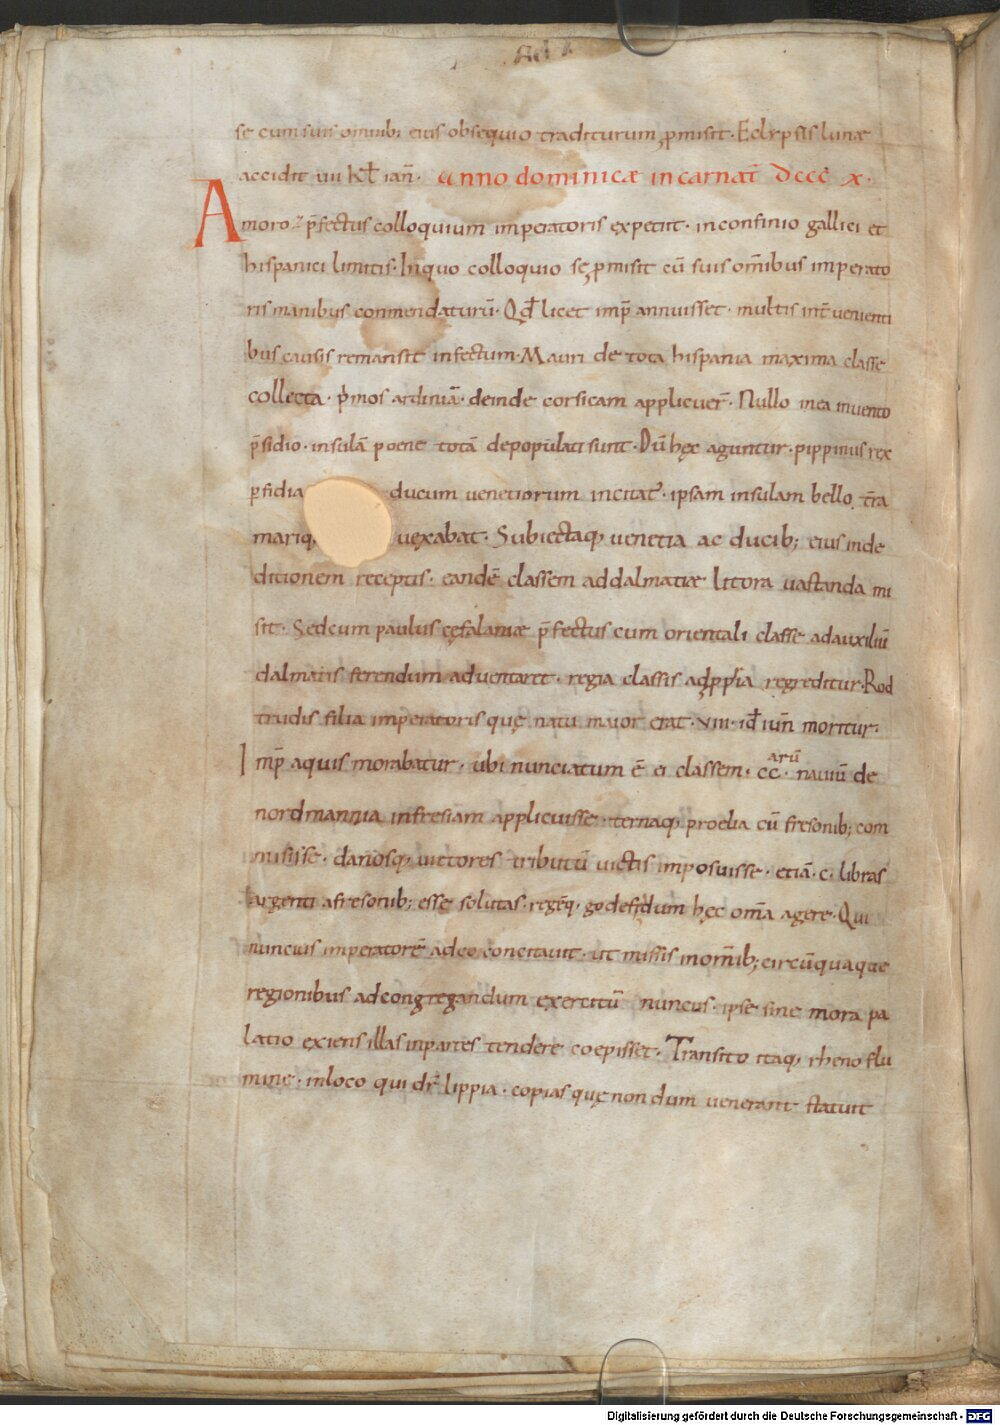 se cum suis omnib; eius obsequio traditurum ꝓmisit· Eclypsis lunæ
accidit uii kł ian̄· anno dominicæ incarnat̄ dccc x·
Amoroz p̄fectus colloquium imperatoris expetit· inconfinio gallici et
hispanici limitis· Inquo colloquio se ꝓmisit cū suis om̄ibus imperato
ris manibus conmendaturū· Qđ licet imp̄ annuisset· multis int̄uenienti
bus causis remansit infectum· Mauri de tota hispania maxima classe
collecta· p̄mos ardiniā· deinde corsicam applicuer̄· Nullo inea inuento
p̄sidio· insulā poene totā depopulati sunt· Dū hęc aguntur· pippinus rex
ꝑfidia ducum uenetiorum incitat᷒· ipsam insulam bello t̄ra
mariq; uexabat· Subiectaq; uenetia ac ducib; eius inde
ditionem receptis· eandē classem addalmatiæ littora uastanda mi
sit· Sedcum paulus cęfalaniæ p̄fectus cum orientali classe adauxiliū
dalmatis ferendum aduentaret· regia classis adꝓpria regreditur· Rod
trudis filia imperatoris quę natu maior erat· viii· iđ iun̄ moritur·
Imp̄ aquis morabatur· ubi nunciatum ē ei classem· cc· arū nauiū de
nordmannia infresiam applicuisse· ternaq; proelia cū fresonib; com
misisse· danosq; uictores tributū uictis imposuisse· etiā· c· libras
argenti afresonib; esse solutas· regēq; godefridum hęc om̄a agere· Qui
nuncius imperatorē adeo concitauit· ut missis inom̄ib; circūquaque
regionibus adcongregandum exercitū nuncius· ipse sine mora pa
latio exiens illas inpartes tendere coepisset· Transito itaq; rheno flu
mine· inloco qui dr̄ lippia· copias quę non dum uenerant statuit
Digitalisierung gefördert durch die Deutsche Forschungsgemeinschaft - DFG